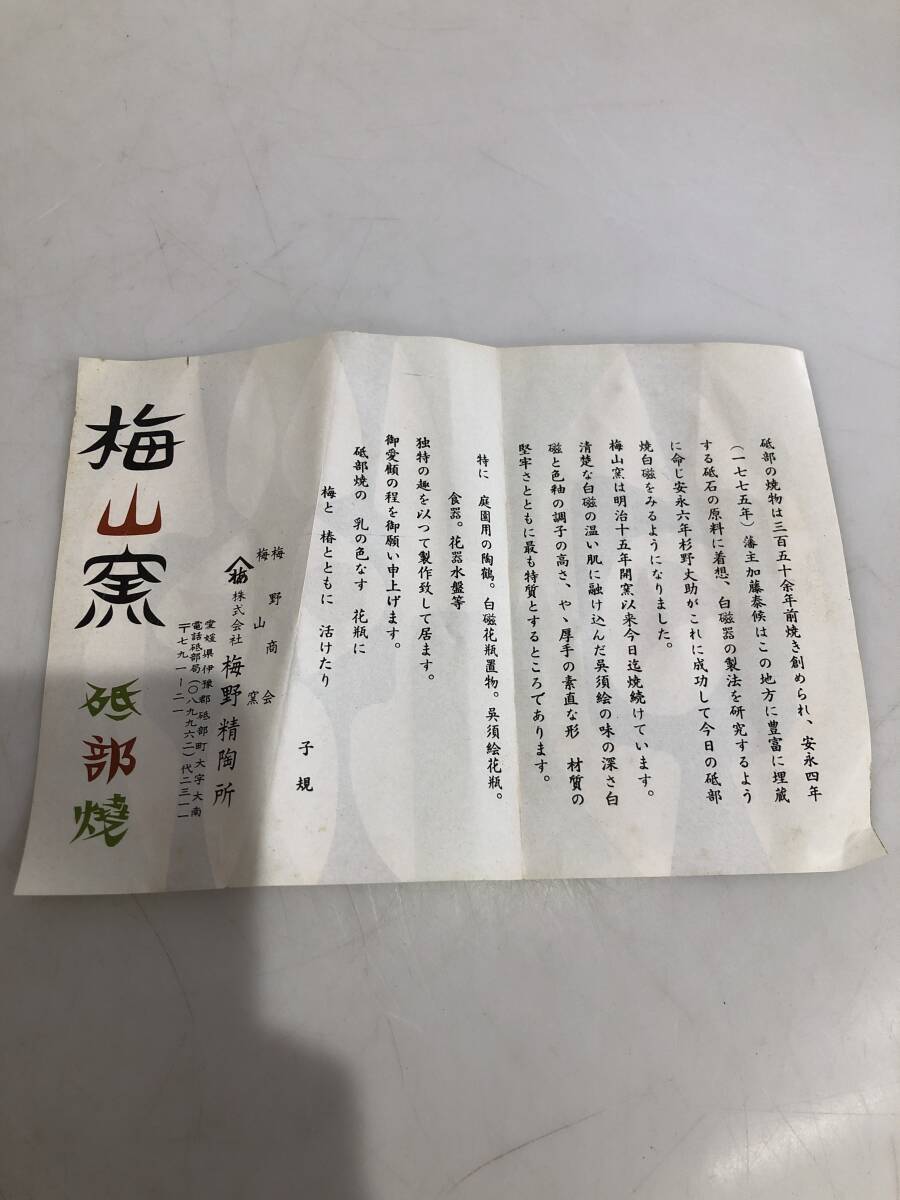 砥部の焼物は三百五十余年前焼き創められ、安永四年
(一七七五年)藩主加藤泰候はこの地方に豊富に埋蔵
する砥石の原料に着想、白磁器の製法を研究するよう
に命じ安永六年杉野丈助がこれに成功して今日の砥部
焼白磁をみるようになりました。
梅山窯は明治十五年開窯以来今日迄焼続けています。
清楚な白磁の温い肌に融け込んだ呉須絵の味の深さ白
磁と色釉の調子の高さ、やゝ厚手の素直な形 材質の
堅牢さとともに最も特質とするところであります。
特に 庭園用の陶鶴。白磁花瓶置物。呉須絵花瓶。
食器。花器水盤等
独特の趣を以つて製作致して居ます。
御愛顧の程を御願い申上げます。
砥部焼の 乳の色なす 花瓶に
梅と 椿とともに 活けたり
子規
梅野商会
梅山窯
梅 株式会社 梅野精陶所
愛媛県伊豫郡砥部町大字大南
電話砥部局(〇八九九六二)代二三一一
〒七九一−二一
梅山窯 砥部燒